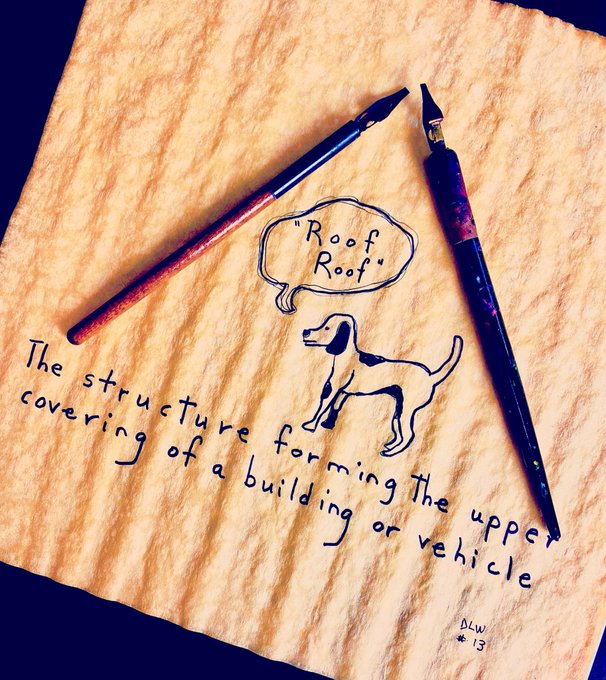 "Roof
Roof"
The structure forming the upper
covering of a building or vehicle
DLW
# 13